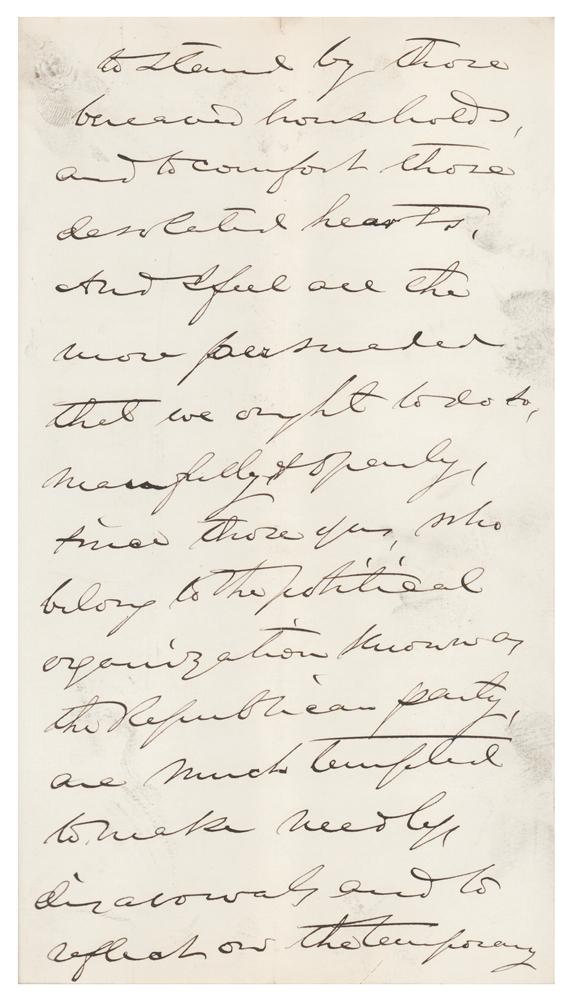 to stand by those
bereaved households,
and to comfort those
desolated hearts,
And I feel all the
more persuaded
that we ought to do so,
manfully & openly,
since those of us, who
belong to the political
organization known as
the Republican party,
are much tempted
to make needless
disavowals and to
reflect on the temporary